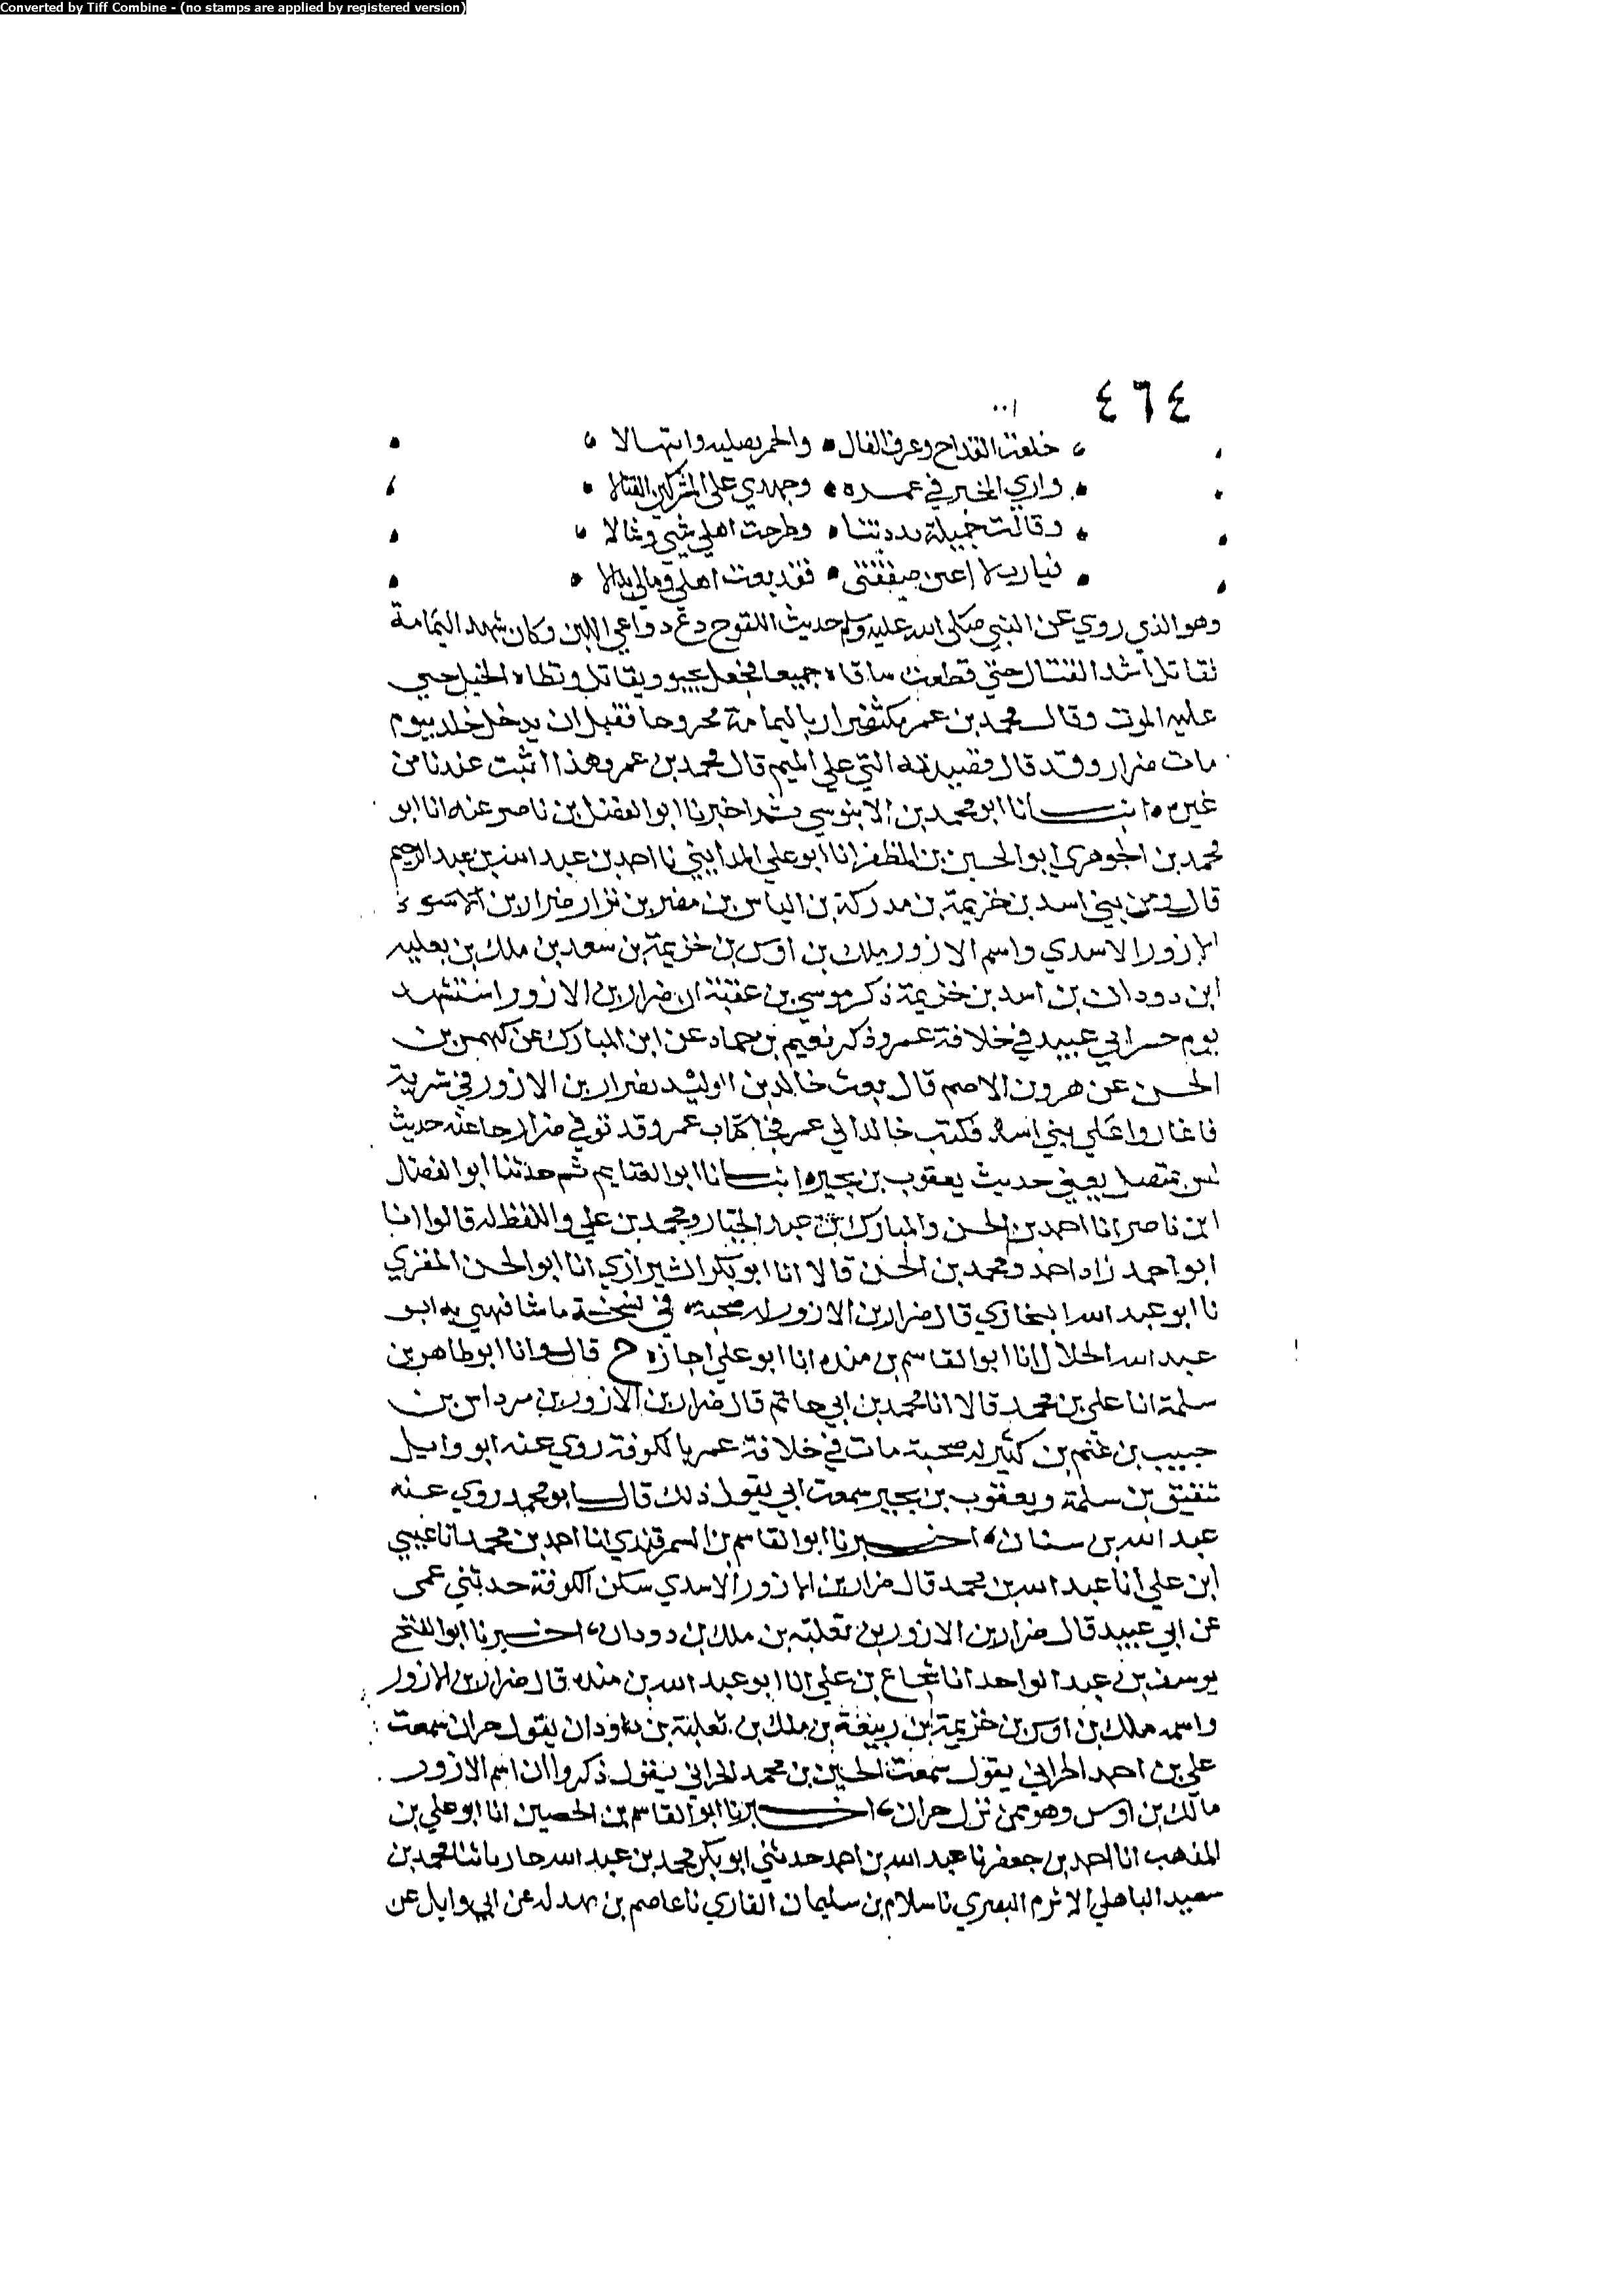 Converted by Tiff Combine - (no stamps are applied by registered version)
٤٦٤
خلعت القداح وعزف القال والخمر تصلية وابتهالا
وكري المحبر في غمره وجهدي على المشركين القتالا
وقالت جميلة بددتنا وطرحت اهلي شتى وشالا
فيا رب لا اغبن صفقتي فقد بعت اهلي ومالي بدالا
وهو الذي روي عن النبي صلى الله عليه وسلم حديث اللقوح دع دواعي اللبن وكان شهد اليمامة
فقاتل اشد القتال حتى قطعت ساقاه جميعا فجعل يحبو ويقاتل وتطاه الخيل حتى
عليه الموت وقال محمد بن عمر مكث ضرار باليمامة مجروحا فقبل ان يدخل خلد بيوم
مات ضرار وقد قال قصيدته التي على الميم قال محمد بن عمر وهذا اثبت عندنا من
غيره انبانا ابو محمد بن الابنوسي ثم اخبرنا ابو الفضل بن ناصر عنه انا ابو
محمد بن الجوهري ابو الحسين بن المظفر انا ابو علي المدايني نا احمد بن عبد الله بن عبد الرحيم
قال ومن بني اسد بن خزيمة بن مدركة بن الياس بن مضر بن نزار ضرار بن
الازور الاسدي واسم الازور ملك بن اوس بن خزيمة بن سعد بن ملك بن بعلبه
ابن دودان بن اسد بن خزيمة ذكر موسى بن عقبة ان ضرار بن الازور استشهد
يوم حسر ابي عبيد في خلافة عمر وذكر نعيم بن حماد عن ابن المبارك عن كهمس بن
الحسن عن هرون الاصم قال بعث خالد بن الوليد بضرار بن الازور في سرية
فاغاروا على بني اسد فكتب خالد الي عمر فجا كتاب عمر وقد توفي ضرار جا عنه حديث
ليس متصل يعني حديث يعقوب بن بجير انبانا ابو الغنايم ثم حدثنا ابو الفضل
ابن ناصر انا احمد بن الحسن والمبارك بن عبد الجبار ومحمد بن علي واللفظ له قالوا انا
ابو احمد زاد احمد ومحمد بن الحسن قالا انا ابو بكر الشيرازي انا ابو الحسن المقري
نا ابو عبد الله البخاري قال ضرار بن الازور له صحبة في نسخة ما شافهني به ابو
عبد الله الخلال انا ابو القاسم بن منده انا ابو علي اجازه ح قال وانا ابو طاهر بن
سلمة انا علي بن محمد قالا انا محمد بن ابي حاتم قال ضرار بن الازور بن مرداس بن
حبيب بن غنم بن كثير له صحبة مات في خلافة عمر بالكوفة روي عنه ابو وايل
شقيق بن سلمة ويعقوب بن بجير سمعت ابي يقول ذلك قال ابو محمد روي عنه
عبد الله بن سنان اخبرنا ابو القاسم بن السمرقندي انا احمد بن محمد انا عيسي
ابن علي انا عبد الله بن محمد قال ضرار بن الازور الاسدي سكن الكوفة حدثني عمى
عن ابي عبيد قال ضرار بن الازور بن ثعلبة بن ملك بن دودان اخبرنا ابو الفتح
يوسف بن عبد الواحد انا شجاع بن علي انا ابو عبد الله بن منده قال ضرار بن الازور
واسمه ملك بن اوس بن خزيمة بن ربيعة بن ملك بن ثعلبة بن داودان يقول حران سمعت
علي بن احمد الحراني يقول سمعت الحسين بن محمد الحراني يقول ذكروا ان اسم الازور
مالك بن اوس وهو ممن نزل حران اخبرنا ابو القاسم بن الحصين انا ابو علي بن
المذهب انا احمد بن جعفر نا عبد الله بن احمد حدثني ابو بكر محمد بن عبد الله محمد بن
سعيد الباهلي الاثرم البصري نا سلام بن سليمان القاري نا عاصم بن بهدله عن ابي وايل عن